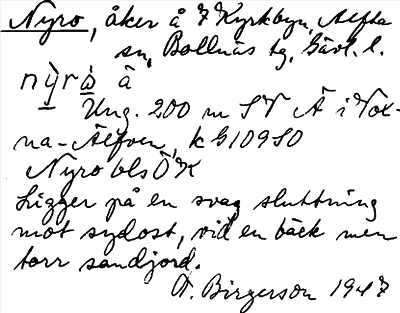 Nyro, åker å 7 Kyrkbyn, Alfta
sn, Bollnäs tg, Gävl. l.
Ung. 200 m SV Å i Vox-
na-Älfven, k G109SO
Nyro bls ÖK
Ligger på en svag sluttning
mot sydost, vid en bäck men
torr sandjord.
A. Birgerson 1947